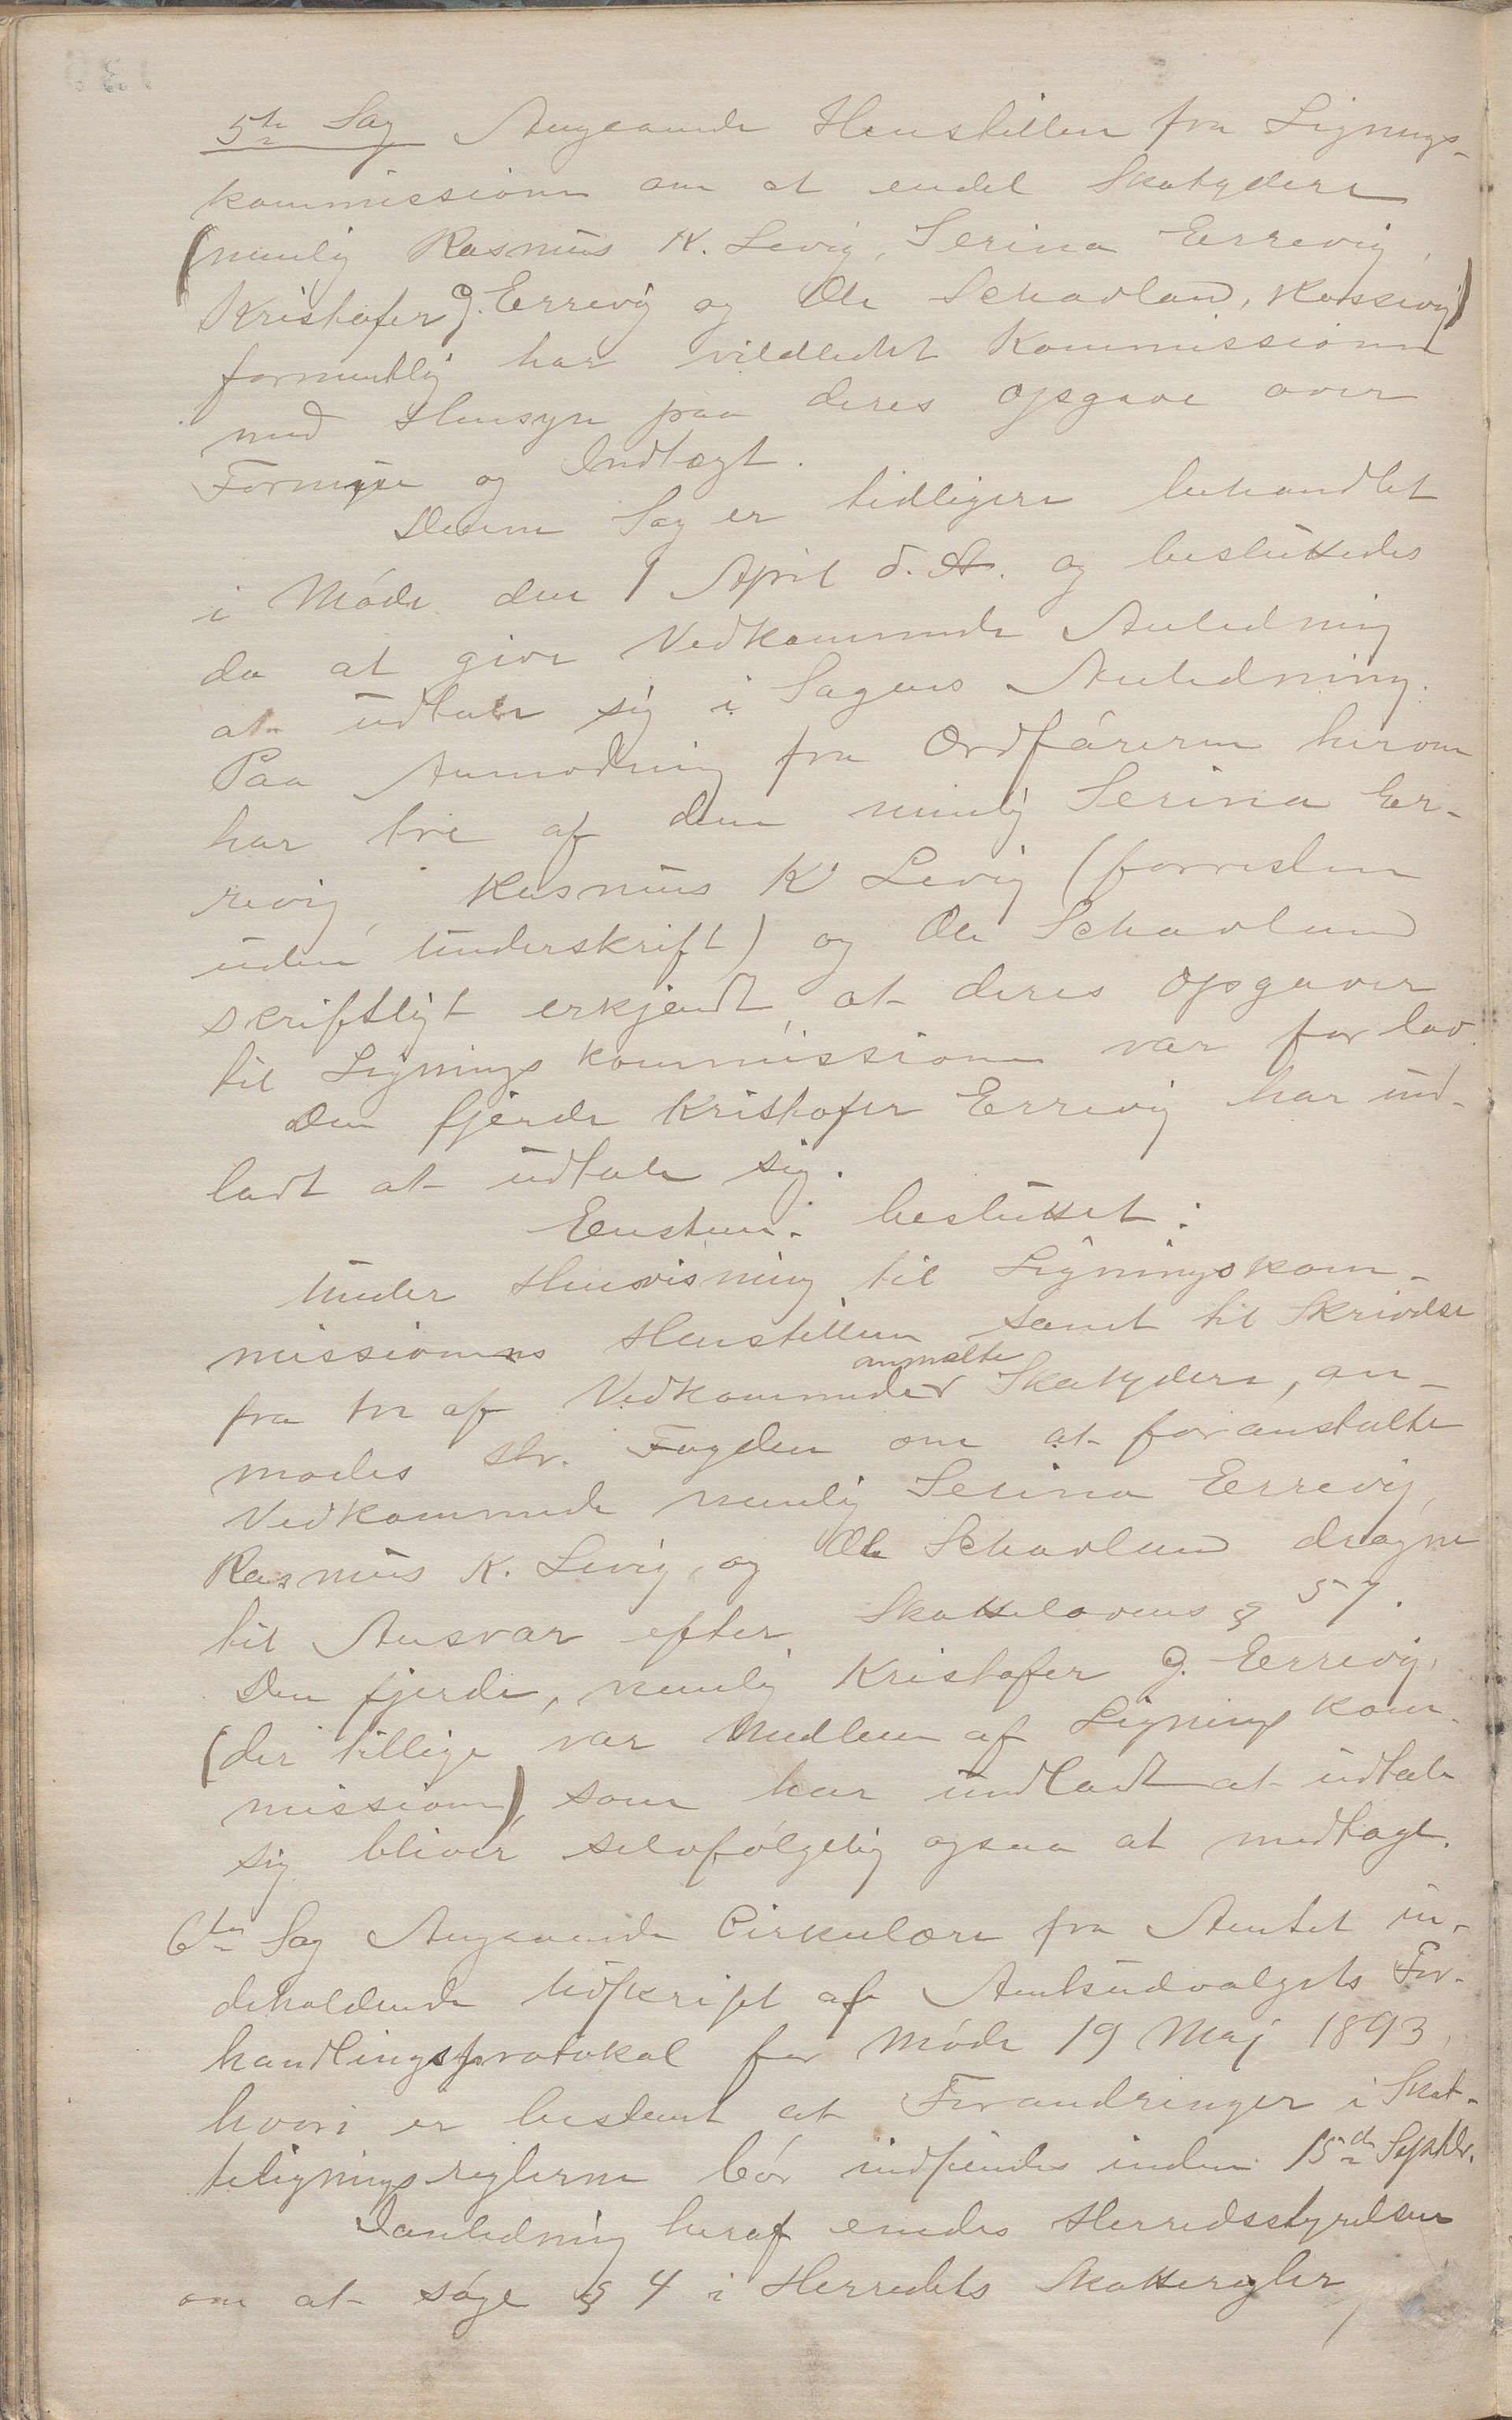 5te Sag Angaaende Henstillen fra Lignings-
kommissionen om at endel Skatydere
(nemlig Rasmus K. Levig, Serina Errevig,
Kristofer J. Errevig og Ole Schavland, Kossevig)
formentlig har vildledet Kommissionen
med Hensyn paa deres Opgave over
Formue og Indtægt.
Denne Sag er tidligere behandlet
i Møde den 1 April d. A. og besluttedes
da at give Vedkommende Anledning
at udtale sig i Sagens Anledning.
Paa Anmodning fra Ordføreren herom
har tre af dem nemlig Serina Er-
revig, Rasmus K Levig (forresten
uden Underskrift) og Ole Schavland
skriftligt erkjendt, at deres Opgaver
til Ligningskommissionen var for lav.
Den fjerde Kristofer Errevig har und-
ladt at udtale sig.
Enstem. besluttet:
Under Henvisning til Ligningskom-
missionens Henstillen samt til Skrivelse
fra tre af Vedkommende ommeldte Skatydere, an-
modes Hr. Fogden om at foranstalte
Vedkommende nemlig Serina Errevig,
Rasmus K. Levig, og Ole Schavland dragne
til Ansvar efter Skattelovens § 57.
Den fjerde, nemlig Kristofer J. Errevig,
(der tillige var Medlem af Lignings kom-
missionen), som har undladt at udtale
sig bliver selvfølgelig ogsaa at medtage.
6te Sag Angaaende Cirkulære fra Amtet in-
deholdende Udskrift af Amtsudvalgets For-
handlingsprotokol for Møde 19 Maj 1893,
hvori er bestemt at Forandringer i Skat-
teligningsreglerne bør indsendes inden 15de Septbr.
I anledning heraf enedes Herredsstyrelsen
om at søge § 4 i Herredets Skatteregler,